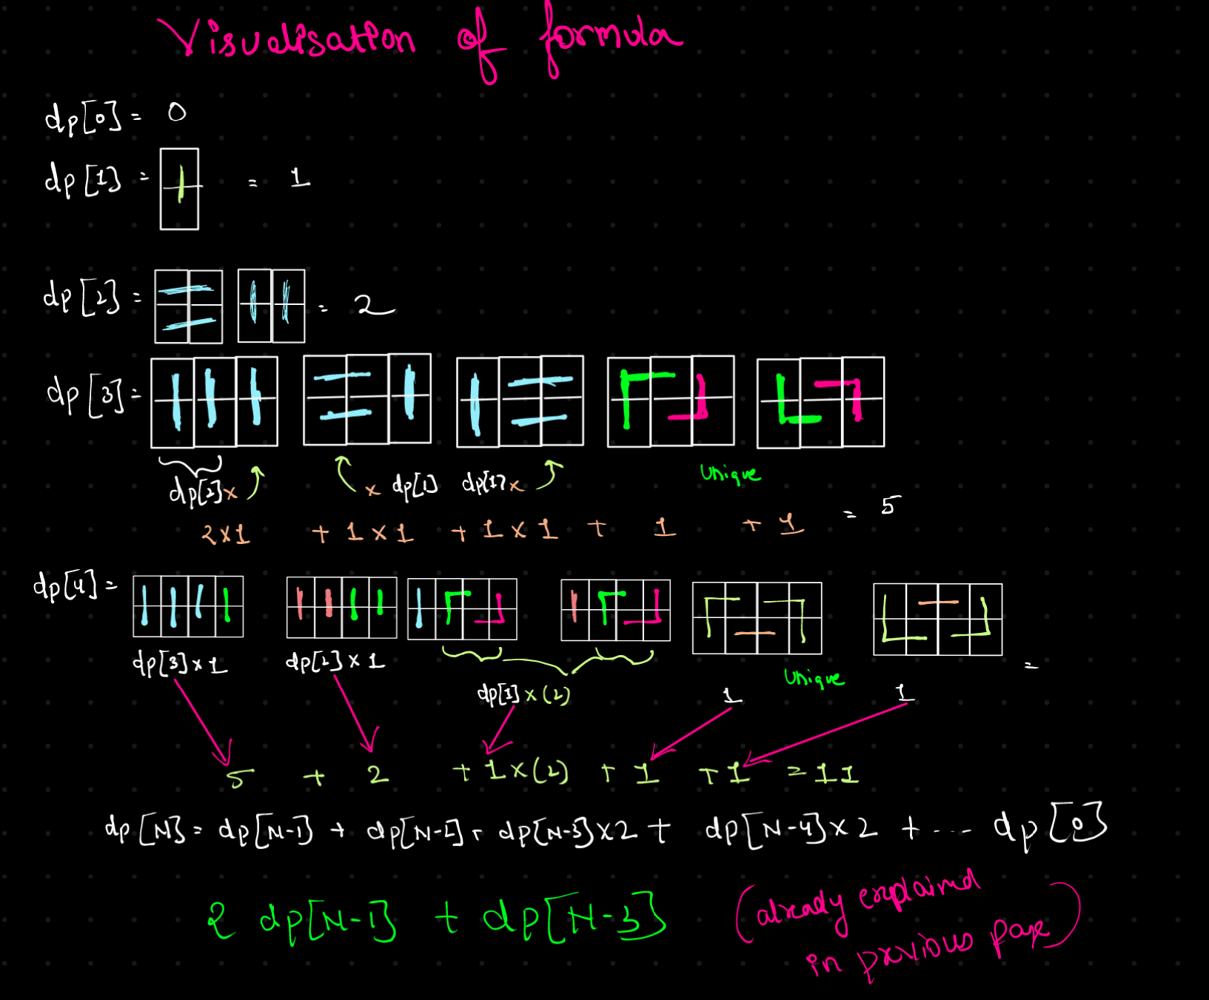 Visualisation of formula
dp[0] = 0
dp[1] = = 1
dp[2] = = 2
dp[3] =
dp[2]x x dp[1] dp[1]x Unique
2x1 + 1x1 + 1x1 + 1 + 1 = 5
dp[4] = =
dp[3]x1 dp[2]x1 Unique
dp[1]x(2) 1 1
5 + 2 + 1x(2) + 1 + 1 = 11
dp[N] = dp[N-1] + dp[N-2] + dp[N-3]x2 + dp[N-4]x2 + ... dp[0]
2 dp[N-1] + dp[N-3] (already explained
in previous page)